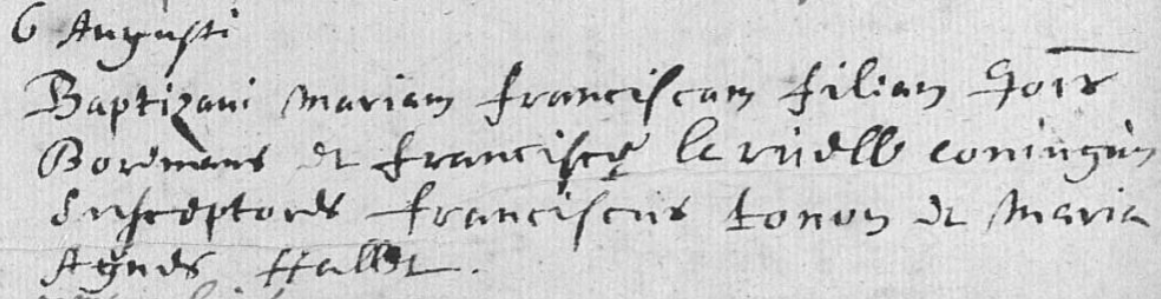 6 Augusti
Baptizaui Mariam franciscam filiam Jois
Bormans et franciscę le ruelle coniugum
Susceptores franciscus tonon et Maria
Agnes Hallet.